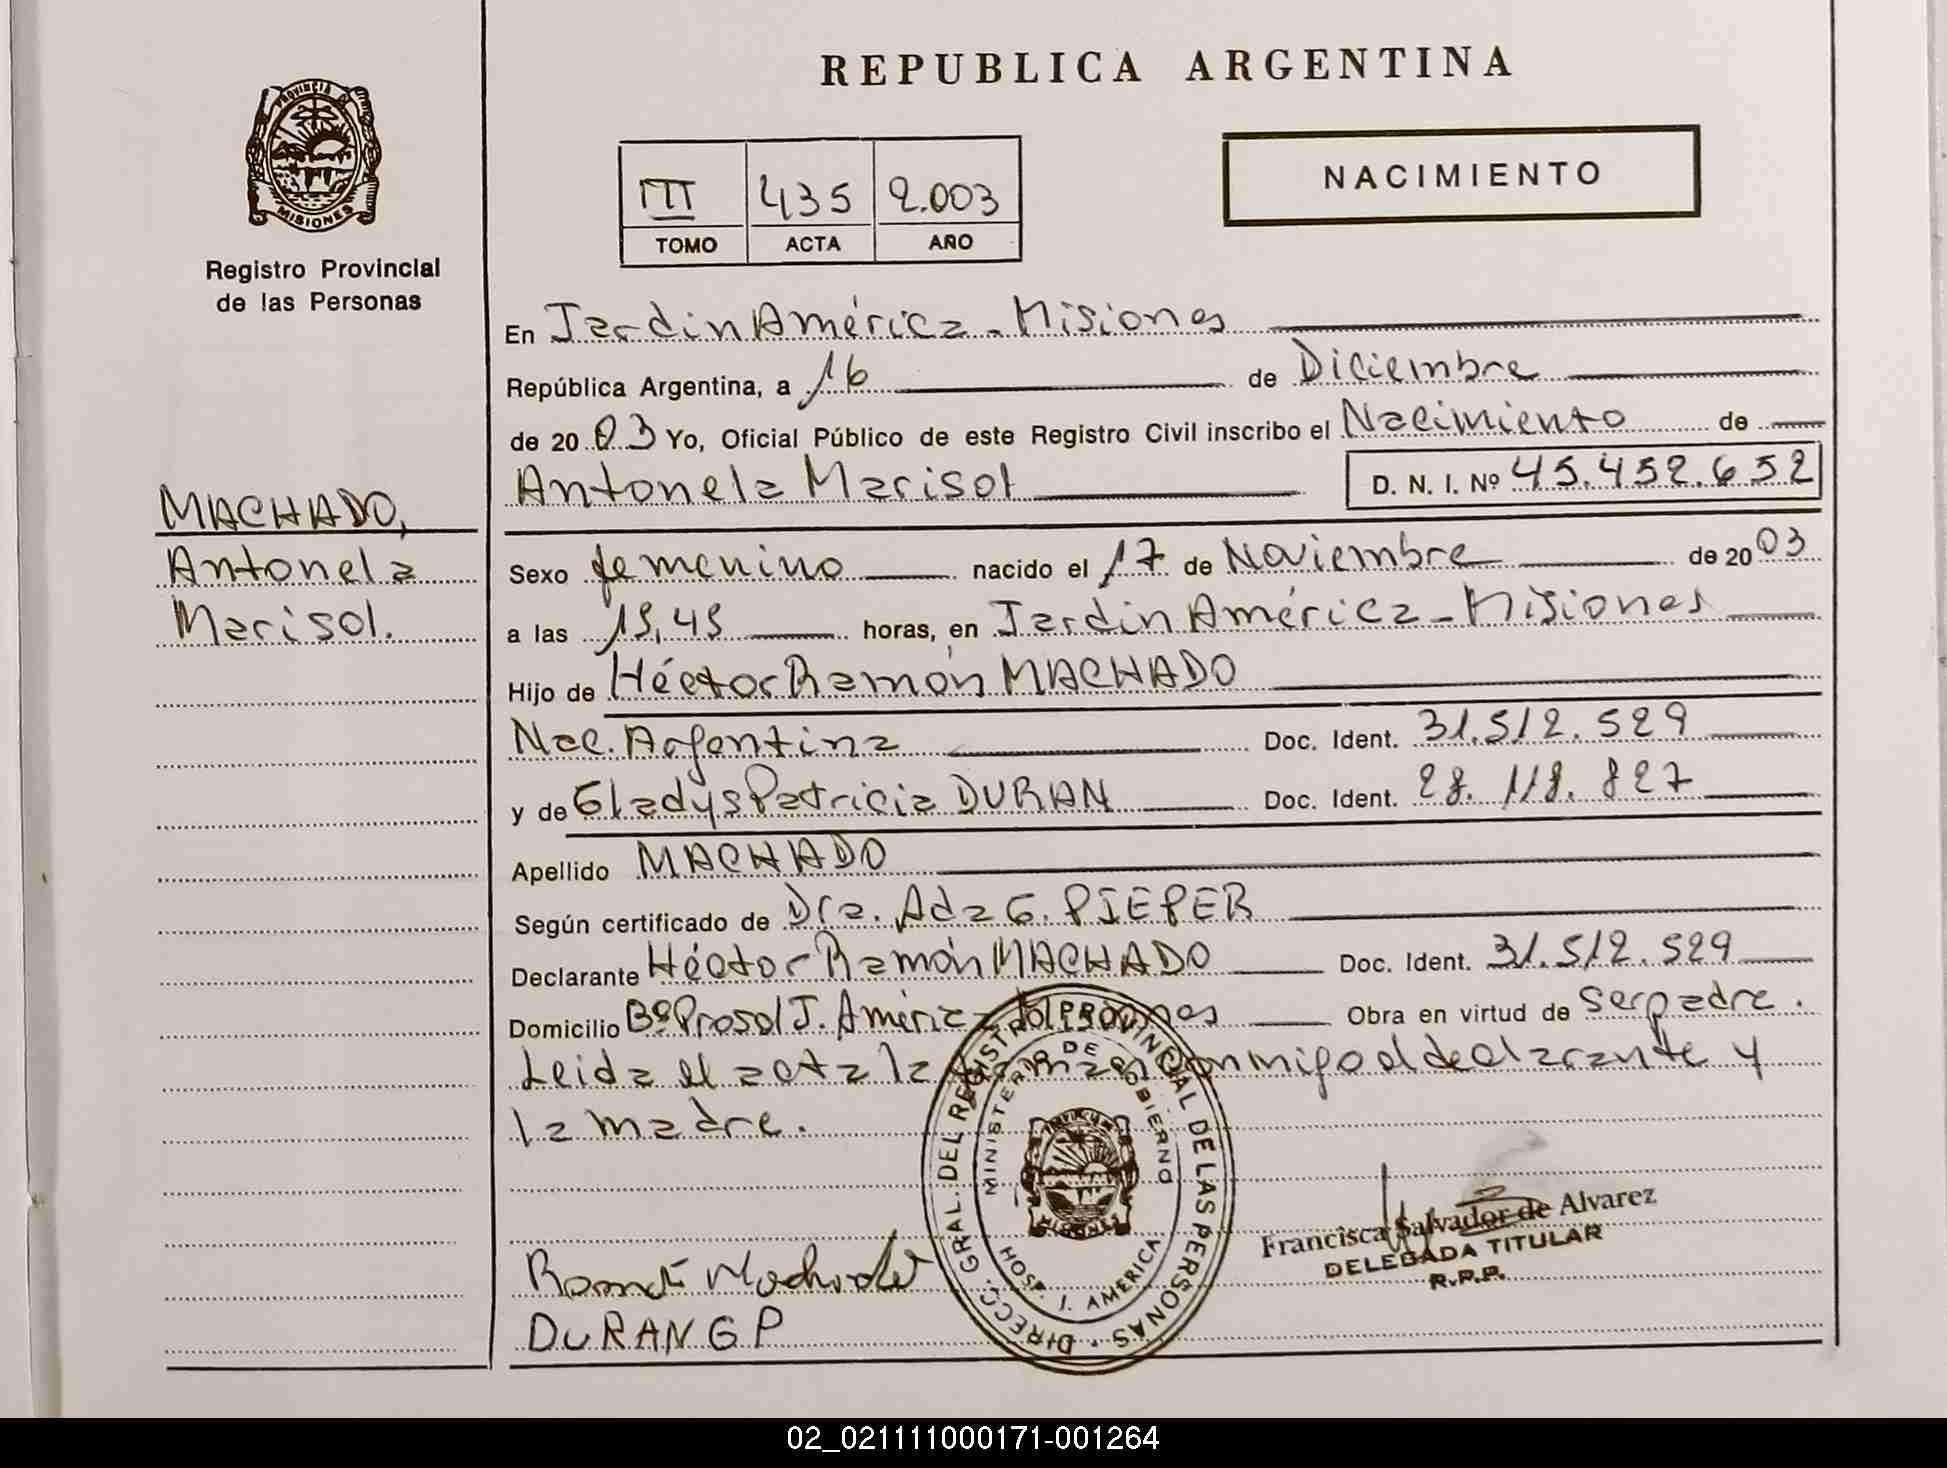 REPUBLICA ARGENTINA
PROVINCIA DE
MISIONES
Registro Provincial
de las Personas
III 435 2.003
TOMO ACTA AÑO
NACIMIENTO
MACHADO,
Antonela
Marisol.
En Jardin América - Misiones
República Argentina, a 16 de Diciembre
de 2003 Yo, Oficial Público de este Registro Civil inscribo el Nacimiento de
Antonela Marisol D. N. I. Nº 45.452.652
Sexo femenino nacido el 17 de Noviembre de 2003
a las 15,45 horas, en Jardin América - Misiones
Hijo de Héctor Ramón MACHADO
Nac. Argentina Doc. Ident. 31.512.529
y de Gladys Patricia DURAN Doc. Ident. 28.118.827
Apellido MACHADO
Según certificado de Dra. Ada G. PIEPER
Declarante Héctor Ramón MACHADO Doc. Ident. 31.512.529
Domicilio Bº Prosol J. América Misiones Obra en virtud de ser padre.
Leida el acta la firman conmigo el declarante y
la madre.
DIRECC. GRAL. DEL REGISTRO PROVINCIAL DE LAS PERSONAS
MINISTERIO DE GOBIERNO
MISIONES
HOSP. J. AMERICA
Francisca Salvador de Alvarez
DELEGADA TITULAR
R.P.P.
Ramón Machado
DURAN G P
02_021111000171-001264